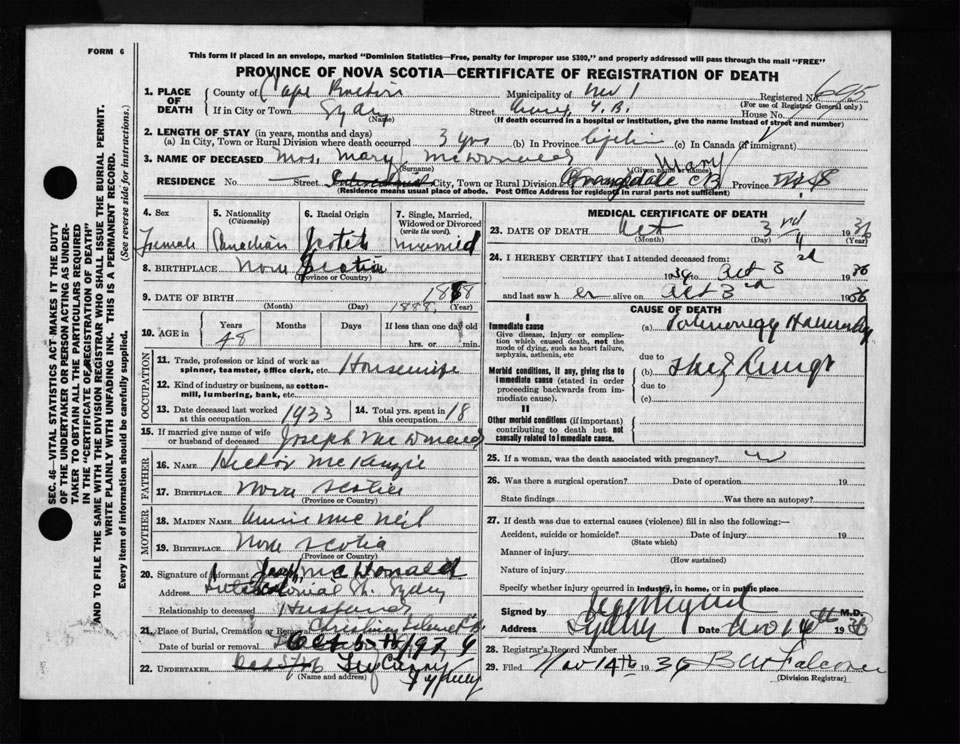 FORM 6
This form if placed in an envelope, marked "Dominion Statistics—Free, penalty for improper use $300," and properly addressed will pass through the mail "FREE"
PROVINCE OF NOVA SCOTIA—CERTIFICATE OF REGISTRATION OF DEATH
SEC. 46—VITAL STATISTICS ACT MAKES IT THE DUTY
OF THE UNDERTAKER OR PERSON ACTING AS UNDER-
TAKER TO OBTAIN ALL THE PARTICULARS REQUIRED
IN THE "CERTIFICATE OF REGISTRATION OF DEATH"
AND TO FILE THE SAME WITH THE DIVISION REGISTRAR WHO SHALL ISSUE THE BURIAL PERMIT.
WRITE PLAINLY WITH UNFADING INK. THIS IS A PERMANENT RECORD.
Every item of information should be carefully supplied. (See reverse side for instructions.)
1. PLACE OF DEATH
County of Cape Breton Municipality of No 1 Registered No. 695
(For use of Registrar General only)
If in City or Town Sydney Street House No.
(Name) (If death occurred in a hospital or institution, give the name instead of street and number)
2. LENGTH OF STAY (in years, months and days)
(a) In City, Town or Rural Division where death occurred 3 yrs (b) In Province Lifetime (c) In Canada (if immigrant)
3. NAME OF DECEASED Mrs. Mary McDonald Mary
(Surname) (Given name or names)
RESIDENCE No Street City, Town or Rural Division Orangedale CB Province
(Residence means usual place of abode. Post Office Address for residents in rural parts not sufficient)
4. Sex
Female
5. Nationality
(Citizenship)
Canadian
6. Racial Origin
Scotch
7. Single, Married, Widowed or Divorced
(write the word)
married
8. BIRTHPLACE Nova Scotia
(Province or Country)
9. DATE OF BIRTH 1888. 1888
(Month) (Day) (Year)
10. AGE in
Years Months Days If less than one day old
48 hrs. or min.
OCCUPATION
11. Trade, profession or kind of work as
spinner, teamster, office clerk, etc. Housewife
12. Kind of industry or business, as cotton-
mill, lumbering, bank, etc.
13. Date deceased last worked at this occupation 1933
14. Total yrs. spent in this occupation 18
15. If married give name of wife or husband of deceased Joseph McDonald
FATHER
16. NAME Hector McKenzie
17. BIRTHPLACE Nova Scotia
(Province or Country)
MOTHER
18. MAIDEN NAME Annie McNeil
19. BIRTHPLACE Nova Scotia
(Province or Country)
20. Signature of Informant McDonald
Address Intercolonial St. Sydney
Relationship to deceased Husband
21. Place of Burial, Cremation or Removal Christmas Island
Date of burial or removal Oct 5th 1936
22. UNDERTAKER Curry Sydney
(Name and address)
MEDICAL CERTIFICATE OF DEATH
23. DATE OF DEATH Oct 3rd 1936
(Month) (Day) (Year)
24. I HEREBY CERTIFY that I attended deceased from:
1936 Oct 3rd 1936
and last saw her alive on Oct 3rd 1936
CAUSE OF DEATH
I
Immediate cause
Give disease, injury or complication which caused death, not the mode of dying, such as heart failure, asphyxia, asthenia, etc
(a) Pulmonary
due to
Morbid conditions, if any, giving rise to immediate cause (stated in order proceeding backwards from immediate cause).
(b)
due to
(c)
II
Other morbid conditions (if important) contributing to death but not causally related to immediate cause.
25. If a woman, was the death associated with pregnancy?
26. Was there a surgical operation? Date of operation 19
State findings Was there an autopsy?
27. If death was due to external causes (violence) fill in also the following:—
Accident, suicide or homicide? Date of injury 19
(State which)
Manner of injury
(How sustained)
Nature of injury
Specify whether injury occurred in industry, in home, or in public place
Signed by M.D.
Address Sydney Date Nov 14th 1936
28. Registrar's Record Number
29. Filed Nov 14th 1936 Falconer
(Division Registrar)